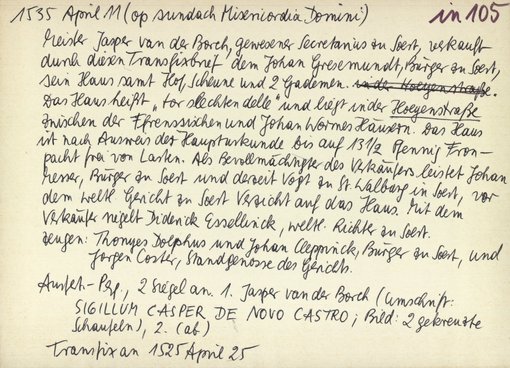 1535 April 11 (op sundach Misericordia Domini) in 105
Meister Jasper van der Borch, gewesener Secretarius zu Soest, verkauft
durch diesen Transfixbrief dem Johan Gresemundt, Bürger zu Soest,
sein Haus samt Hof, Scheune und 2 Gademen. in der Hoegenstraße.
Das Haus heißt "tor slechten delle" und liegt in der Hoegenstraße
zwischen der und Johan Wormes Häusern. Das Haus
ist nach Ausweis der Haupturkunde bis auf 13 1/2 Pfennig Fron-
pacht frei von Lasten. Als Bevollmächtigter des Verkäufers leistet Johan
Messer, Bürger zu Soest und derzeit Vogt zu St. Walburg in Soest, vor
dem weltl. Gericht zu Soest Verzicht auf das Haus. Mit dem
Verkäufer siegelt Diderick Essellinck, weltl. Richter zu Soest.
Zeugen: Thonyes Dolphus und Johan Cleppinck, Bürger zu Soest, und
Jorgen Coster, Standgenosse des Gerichts.
Ausf.- Pg., 2 Siegel an. 1. Jasper van der Borch (Umschrift:
SIGILLUM CASPER DE NOVO CASTRO; Bild: 2 gekreuzte
Schaufeln), 2. (ab)
Transfix an 1525 April 25